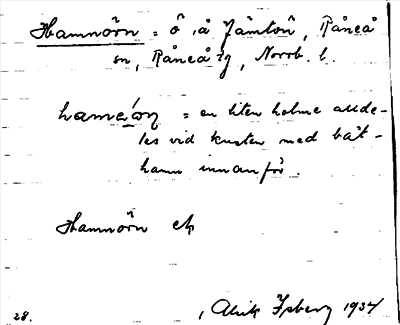 Hamnörn = ö i å Jämtön, Råneå
sn, Råneå tg, Norrb. l.
hamnáön = en liten holme allde-
les vid kusten med båt-
hamn innanför.
Hamnörn
28.
Alrik Ysberg 1937